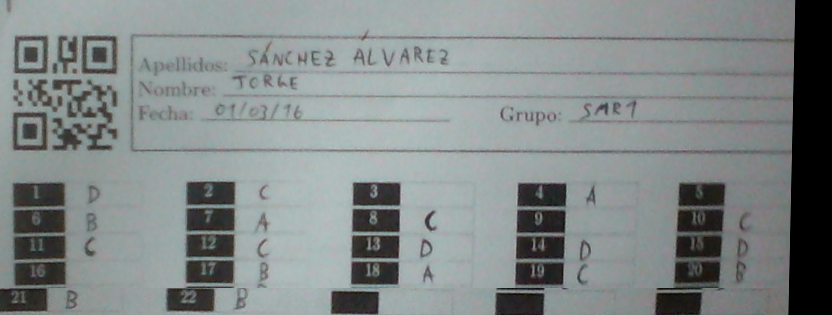 Apellidos: SÁNCHEZ ÁLVAREZ
Nombre: JORGE
Fecha: 01/03/16 Grupo: SAR1
1 D 2 C 3 4 A 5
6 B 7 A 8 C 9 10 C
11 C 12 C 13 D 14 D 15 D
16 17 B 18 A 19 C 20 B
21 B 22 B